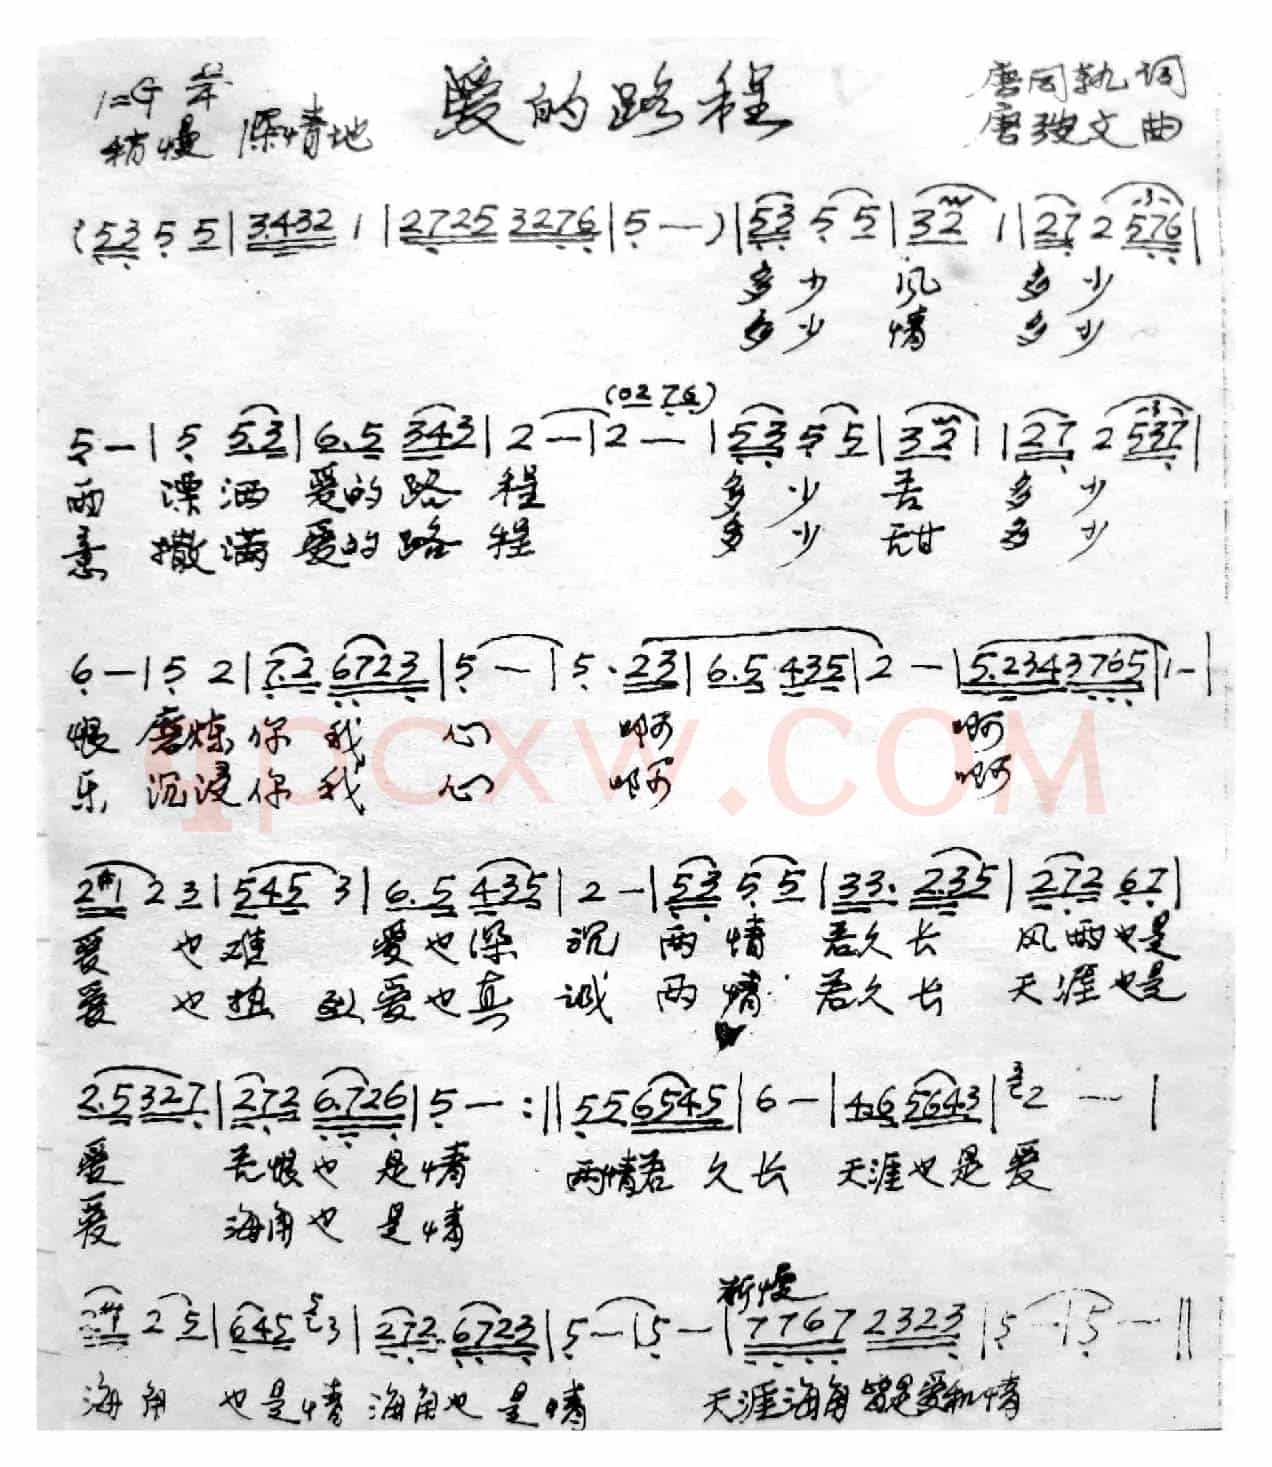 爱的路程
1=G 2/4
稍慢 深情地
词
唐 文曲
(53 5 5|3.432 1|2725 3276|5 —)|53 5 5|32 1|27 2 576|
多少 风 多少
多少 情 多少
(02 76)
5 —|5 53|6.5 343|2 —|2 —|53 5 5|32 1|27 2 537|
雨 漂洒 爱的路程 多少 苦 多少
意 撒满 爱的路程 多少 甜 多少
6 —|5 2|7.2 6723|5 —|5 . 23|6.5 435|2 —|5.2343765|1 —|
恨 磨炼你我 心 啊 啊
乐 沉浸你我 心 啊 啊
2#1 2 3|545 3|6.5 435|2 —|53 5 5|33. 2.35|272 67|
爱 也难 爱也深 沉 两情 若久长 风雨也是
爱 也热 烈爱也真 诚 两情 若久长 天涯也是
2.5327|272 6.726|5 — :||55 6545|6 —|4.6 5643|3 2 —|
爱 苦恨也 是情 两情若 久长 天涯也是爱
爱 海角也 是情
渐慢
2 5|645 5 3|272. 6723|5 —|5 —|7767 2323|5 —|5 —||
海角 也是情 海角也 是情 天涯海角皆是爱和情
pcxw.COM